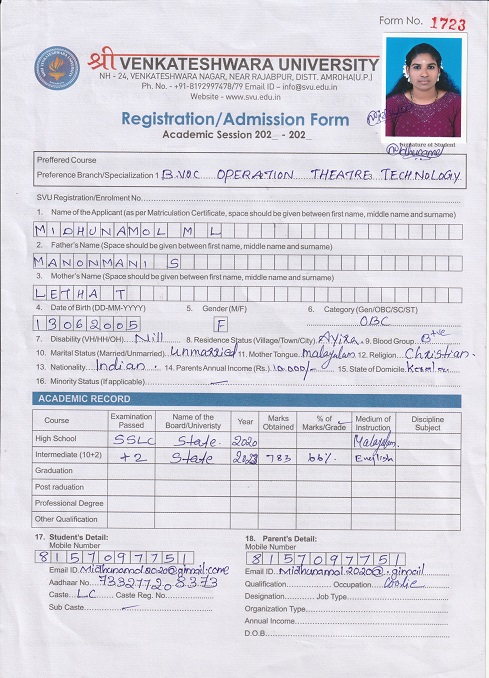 Form No. 1723
श्री VENKATESHWARA UNIVERSITY
NH - 24, VENKATESHWARA NAGAR, NEAR RAJABPUR, DISTT. AMROHA(U.P.)
Ph. No. - +91-8192997478/79 Email ID – info@svu.edu.in
Website - www.svu.edu.in
Registration/Admission Form
Academic Session 202_ - 202_
Signature of Student
Midhunamol
Preffered Course
Preference Branch/Specialization 1 B.VOC OPERATION THEATRE TECHNOLOGY
SVU Registration/Enrolment No.
1. Name of the Applicant (as per Matriculation Certificate, space should be given between first name, middle name and surname)
MIDHUNAMOL M L
2. Father's Name (Space should be given between first name, middle name and surname)
MANONMANI S
3. Mother's Name (Space should be given between first name, middle name and surname)
LETHA T
4. Date of Birth (DD-MM-YYYY) 5. Gender (M/F) 6. Category (Gen/OBC/SC/ST)
13062005 F OBC
7. Disability (VH/HH/OH) Nill 8. Residence Status (Village/Town/City) Ayira 9. Blood Group B+ve
10. Marital Status (Married/Unmarried) Unmarried 11. Mother Tongue malayalam 12. Religion Christian
13. Nationality Indian 14. Parents Annual Income (Rs.) 10,000/- 15. State of Domicile Kerala
16. Minority Status (If applicable) -
ACADEMIC RECORD
Course Examination Passed Name of the Board/Univeristy Year Marks Obtained % of Marks/Grade Medium of Instruction Discipline Subject
High School SSLC State 2020 Malayalam
Intermediate (10+2) +2 State 2023 783 66% English
Graduation
Post raduation
Professional Degree
Other Qualification
17. Student's Detail:
Mobile Number
8157097751
Email ID. Midhunamol2020@gmail.com
Aadhaar No. 733277208373
Caste LC Caste Reg. No.
Sub Caste -
18. Parent's Detail:
Mobile Number
8157097751
Email ID. Midhunamol.2020@.gmail
Qualification Occupation Coolie
Designation Job Type
Organization Type
Annual Income
D.O.B.